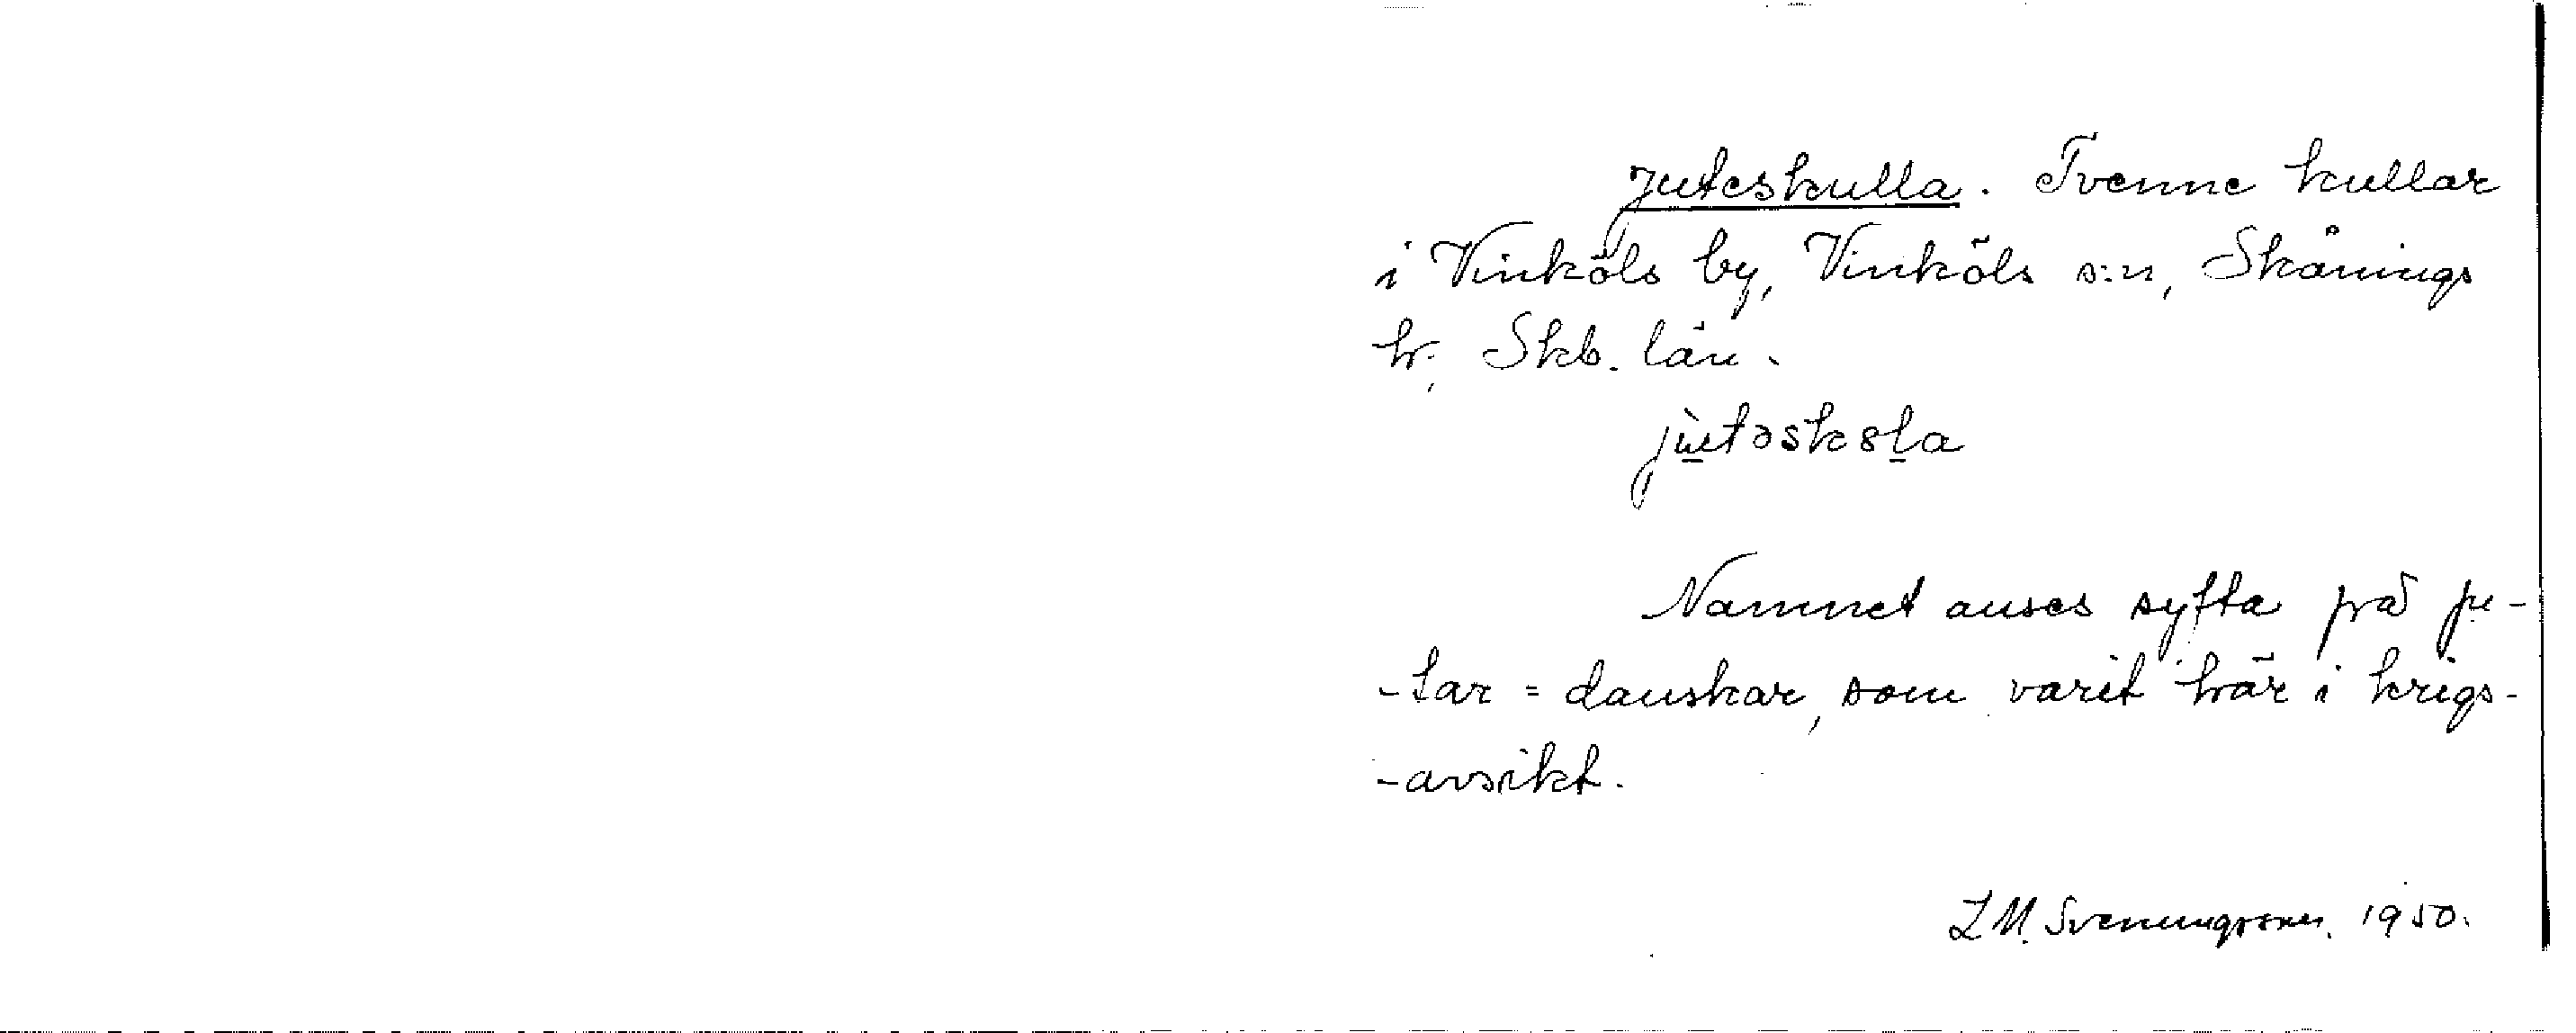 Juteskulla. Tvenne kullar
i Vinköls by, Vinköls s:n, Skånings
hr, Skb. län.
jùtəsk8la
Namnet anses syfta på ju-
-tar = danskar, som varit här i krigs-
-avsikt.
L M. Svenungsson. 1950.